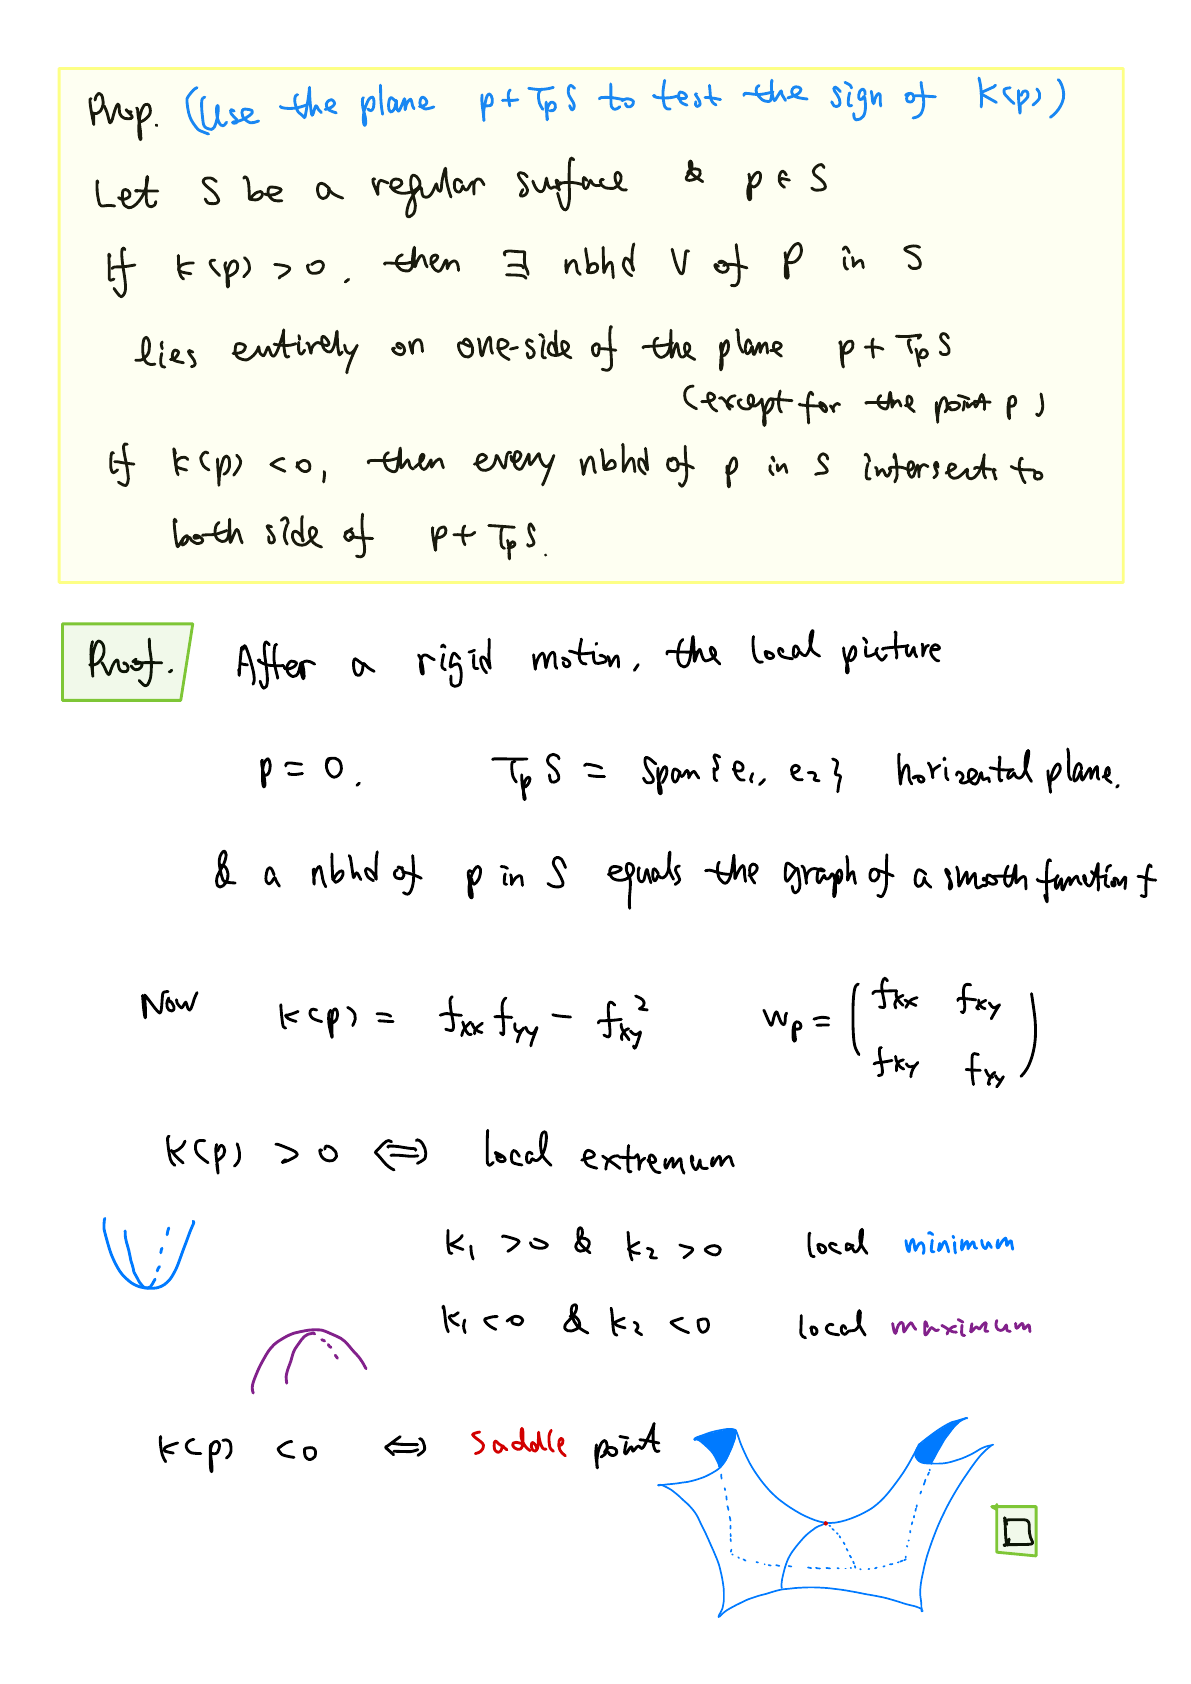 Prop. (Use the plane p + TpS to test the sign of K(p))
Let S be a regular surface & p ∈ S
If K(p) > 0, then ∃ nbhd V of P in S
lies entirely on one-side of the plane p + TpS
(except for the point p)
If K(p) < 0, then every nbhd of p in S intersects to
both side of p + TpS.
Proof. After a rigid motion, the local picture
p = 0. TpS = span{e₁, e₂} horizental plane.
& a nbhd of p in S equals the graph of a smooth function f
Now K(p) = fxx fyy − fxy² Wp = ( fxx fxy
fxy fyy )
K(p) > 0 ⇔ local extremum
K₁ > 0 & K₂ > 0 local minimum
K₁ < 0 & K₂ < 0 local maximum
K(p) < 0 ⇔ saddle point
□